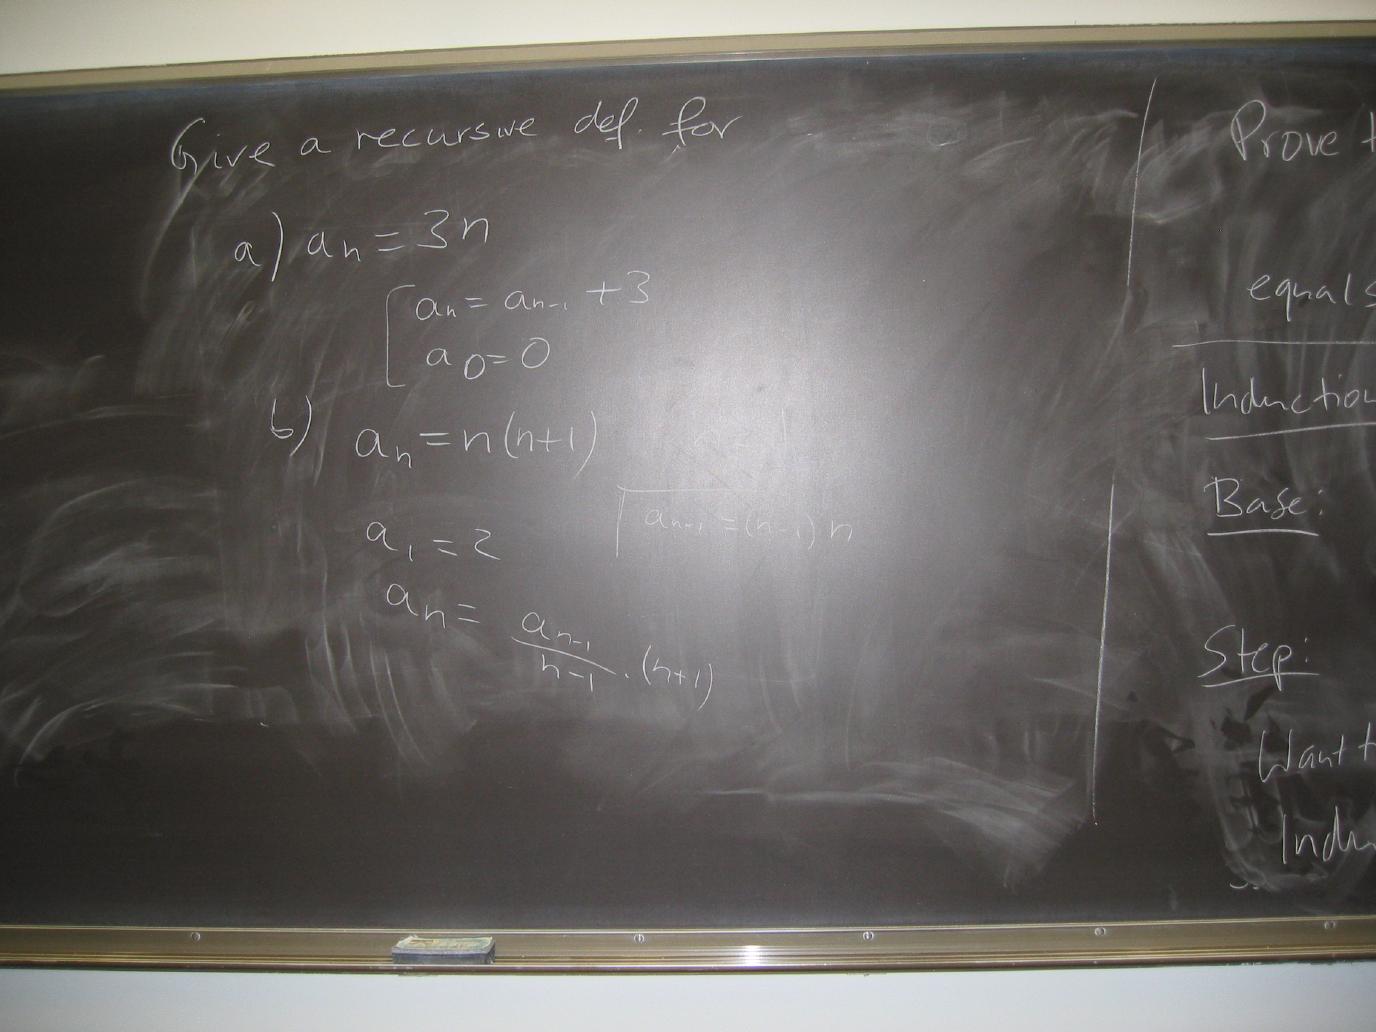 Give a recursive def. for
a) aₙ = 3n
aₙ = aₙ₋₁ + 3
a₀ = 0
b) aₙ = n(n+1)
aₙ₋₁ = (n-1) n
a₁ = 2
aₙ = aₙ₋₁/n-1 · (n+1)
Prove
equals
Induction
Base:
Step:
Want